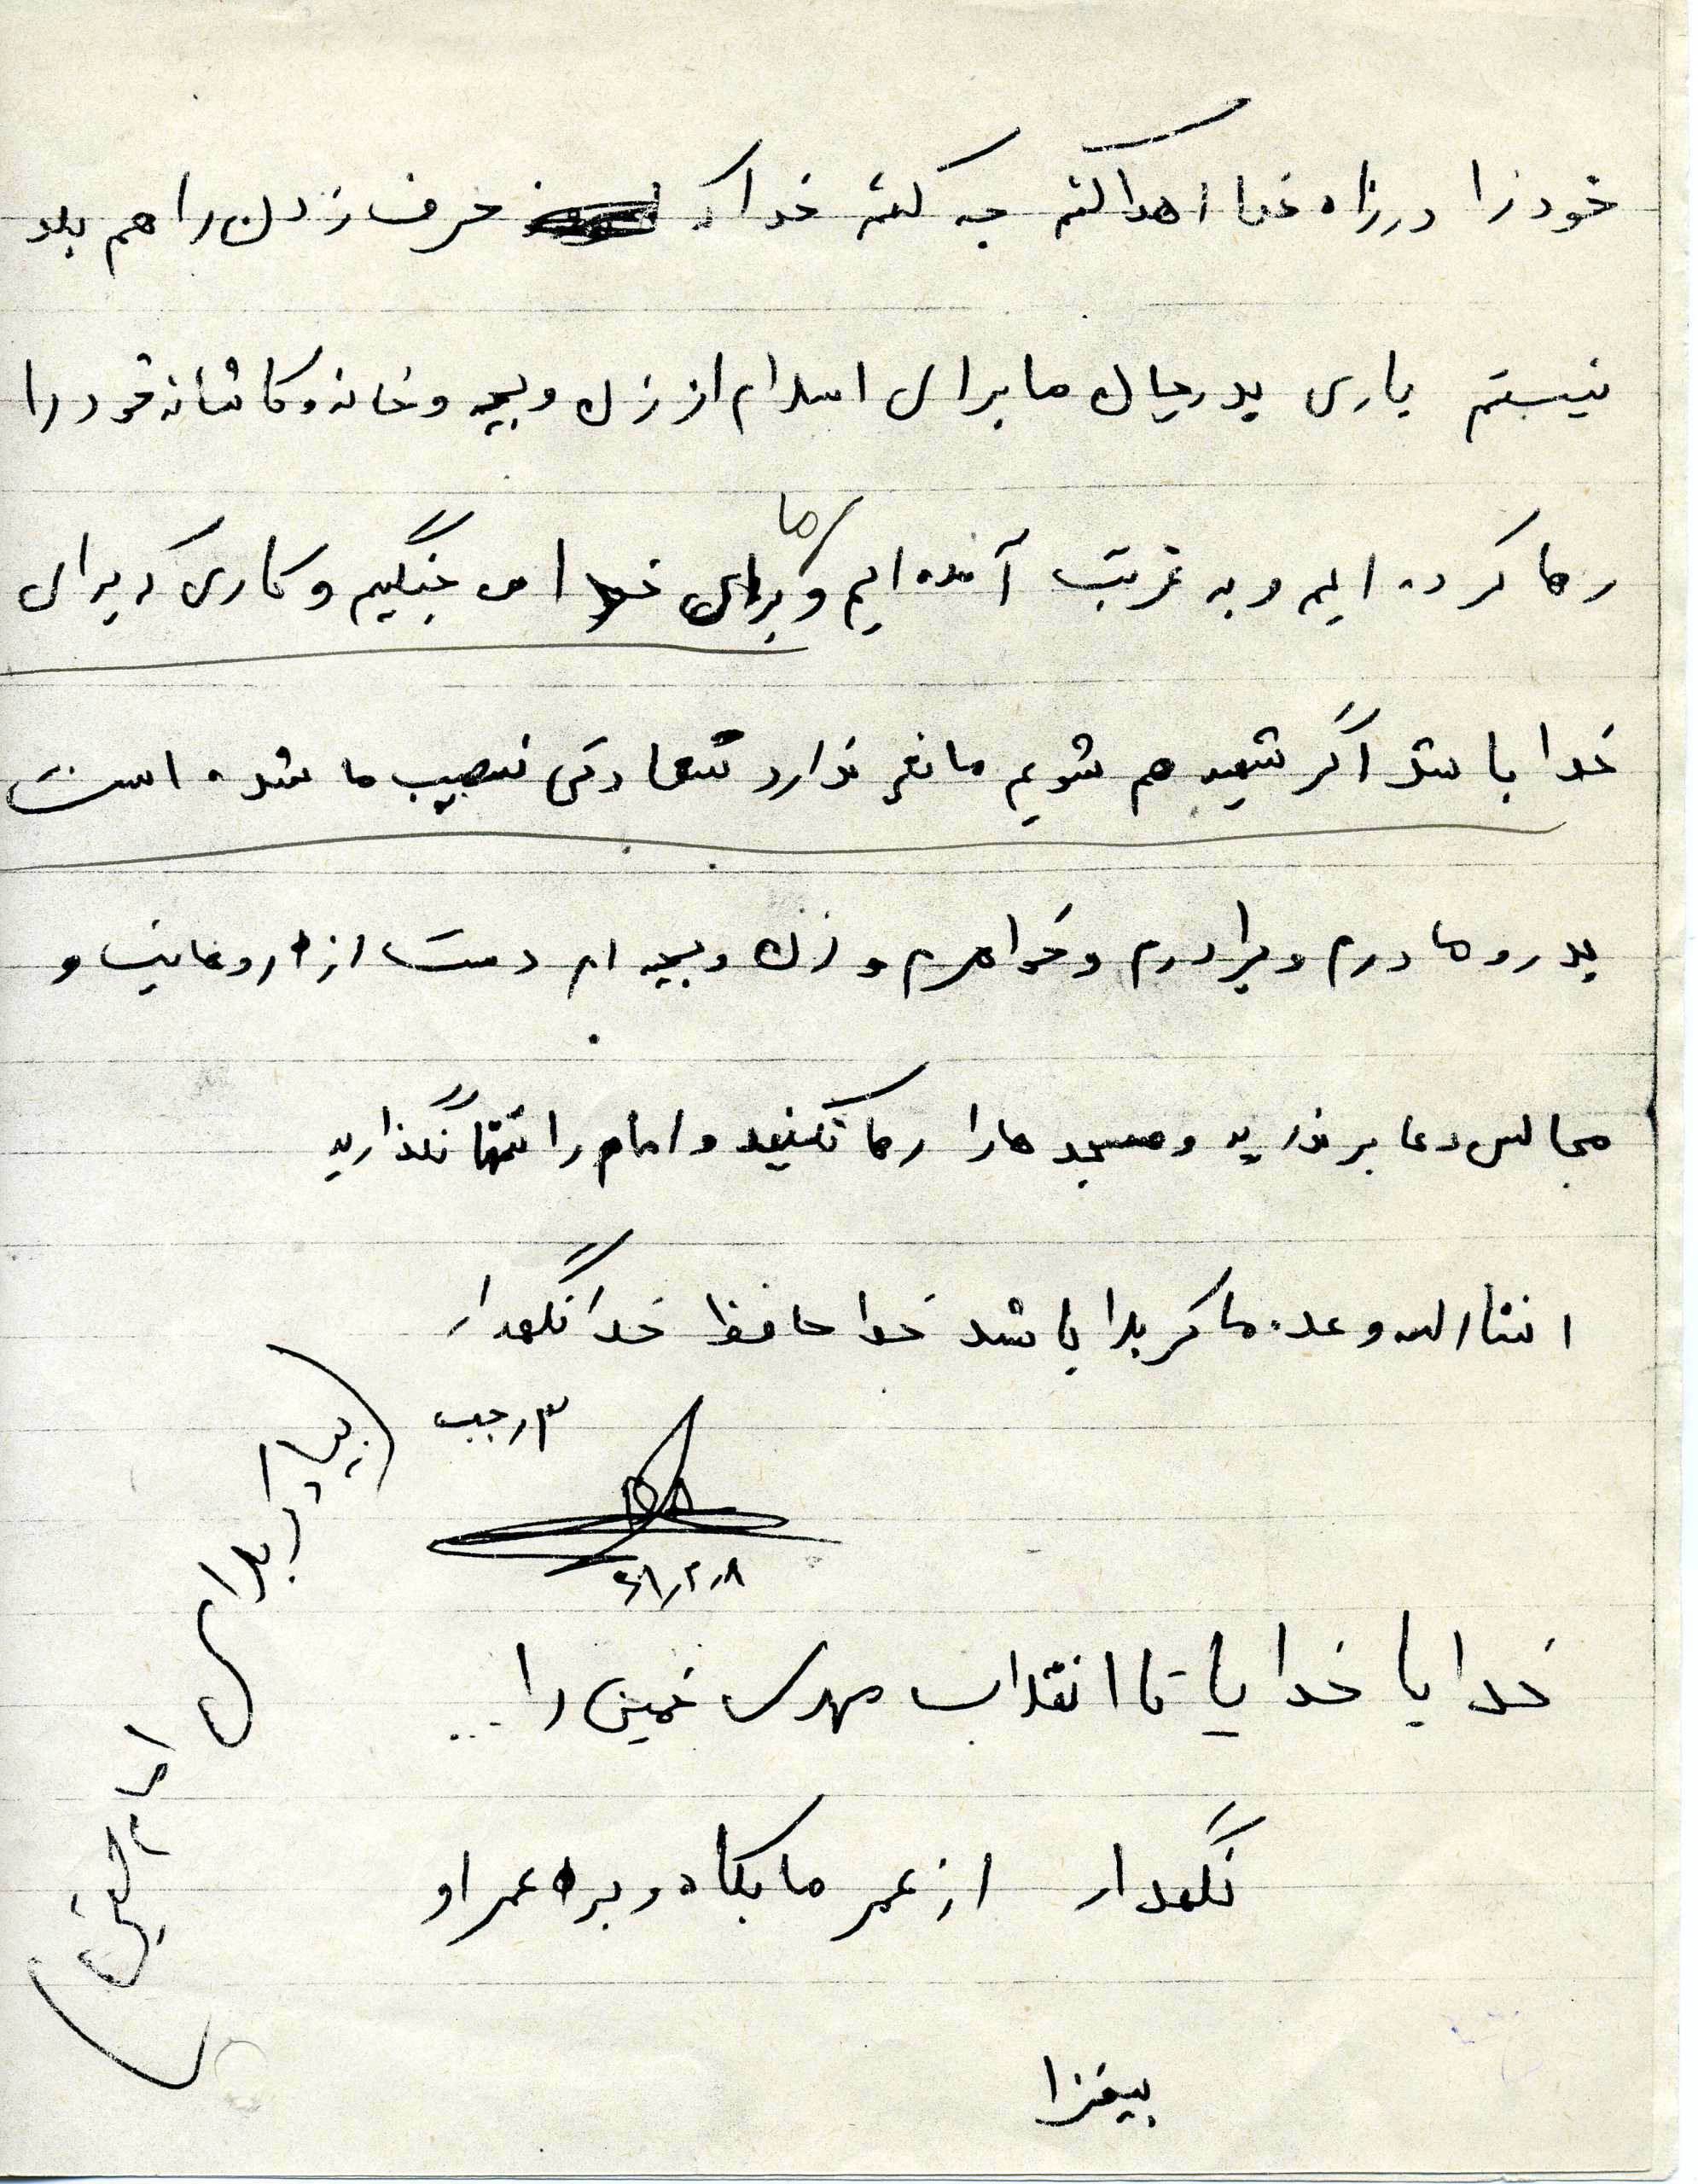 خود را در راه خدا اهدا کنم چه کنم خدا که حرف زدن را هم بلد
نیستم باری پدر جان ما برای اسلام از زن و بچه و خانه و کاشانه خود را
رها کرده ایم و به غربت آمده ایم و برای خدا می جنگیم و کاری که برای
ما
خدا باشد اگر شهید هم شویم مانعی ندارد سعادتی نصیب ما شده است
پدر و مادرم و برادرم و خواهرم و زن و بچه ام دست از روحانیت و
مجالس دعا بر ندارید و مسجد ها را رها نکنید و امام را تنها نگذارید
انشاالله وعده ما کربلا باشد خدا حافظ خدا نگهدار
۳ رجب
۶۱٫۲٫۸
خدایا خدایا تا انقلاب مهدی خمینی را ...
نگهدار از عمر ما بکاه و بر عمر او
بیفزا